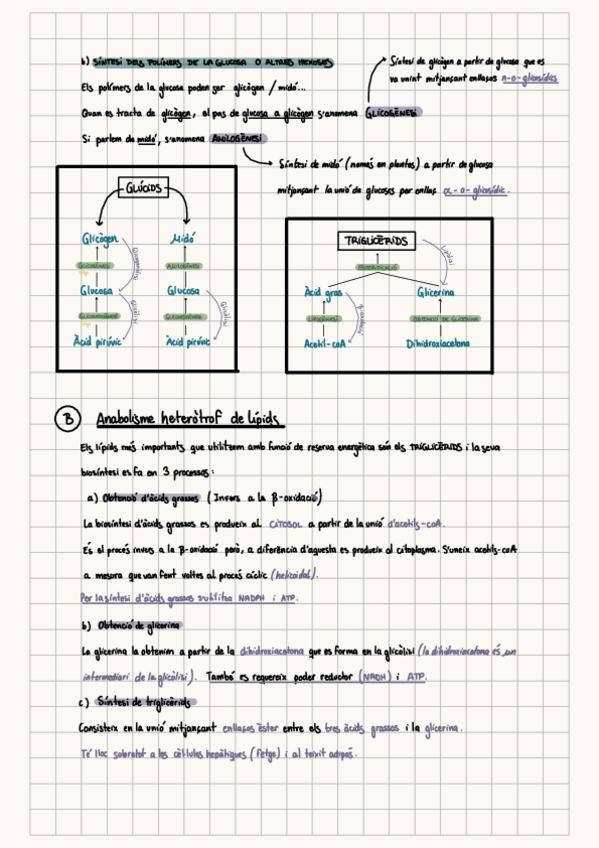 b) SÍNTESI DELS POLÍMERS DE LA GLUCOSA O ALTRES HEXOSES
Els polímers de la glucosa poden ser glicògen / midó...
Quan es tracta de glicògen, el pas de glucosa a glicògen s'anomena GLICOGÈNESI
Síntesi de glicògen a partir de glucosa que es
va unint mitjançant enllaços n-o-glicosídics
Si parlem de midó, s'anomena AMILOGÈNESI
Síntesi de midó (només en plantes) a partir de glucosa
mitjançant la unió de glucoses per enllaç α-o-glicosídic.
GLÚCIDS
Glicògen
Midó
GLICOGÈNESI
AMILOGÈNESI
Glucosa
Glucosa
Glicòlisi
Glicòlisi
Àcid pirúvic
Àcid pirúvic
TRIGLICÈRIDS
Lipòlisi
ESTERIFICACIÓ
Àcid gras
Glicerina
LIPOGÈNESI
OBTENCIÓ DE GLICERINA
Acetil-coA
Dihidroxiacetona
B Anabolisme heteròtrof de lípids
Els lípids més importants que utilitzem amb funció de reserva energètica són els TRIGLICÈRIDS i la seva
biosíntesi es fa en 3 processos:
a) Obtenció d'àcids grassos (Invers a la β-oxidació)
La biosíntesi d'àcids grassos es produeix al CITOSOL a partir de la unió d'acetils-coA.
És el procés invers a la β-oxidació però, a diferència d'aquesta es produeix al citoplasma. S'uneix acetils-coA
a mesura que van fent voltes al procés cíclic (helicoidal).
Per la síntesi d'àcids grassos s'utilitza NADPH i ATP.
b) Obtenció de glicerina
La glicerina la obtenim a partir de la dihidroxiacetona que es forma en la glicòlisi (la dihidroxiacetona és un
intermediari de la glicòlisi). També es requereix poder reductor (NADH) i ATP.
c) Síntesi de triglicèrids
Consisteix en la unió mitjançant enllaços èster entre els tres àcids grassos i la glicerina.
Té lloc sobretot a les cèl·lules hepàtiques (fetge) i al teixit adipós.